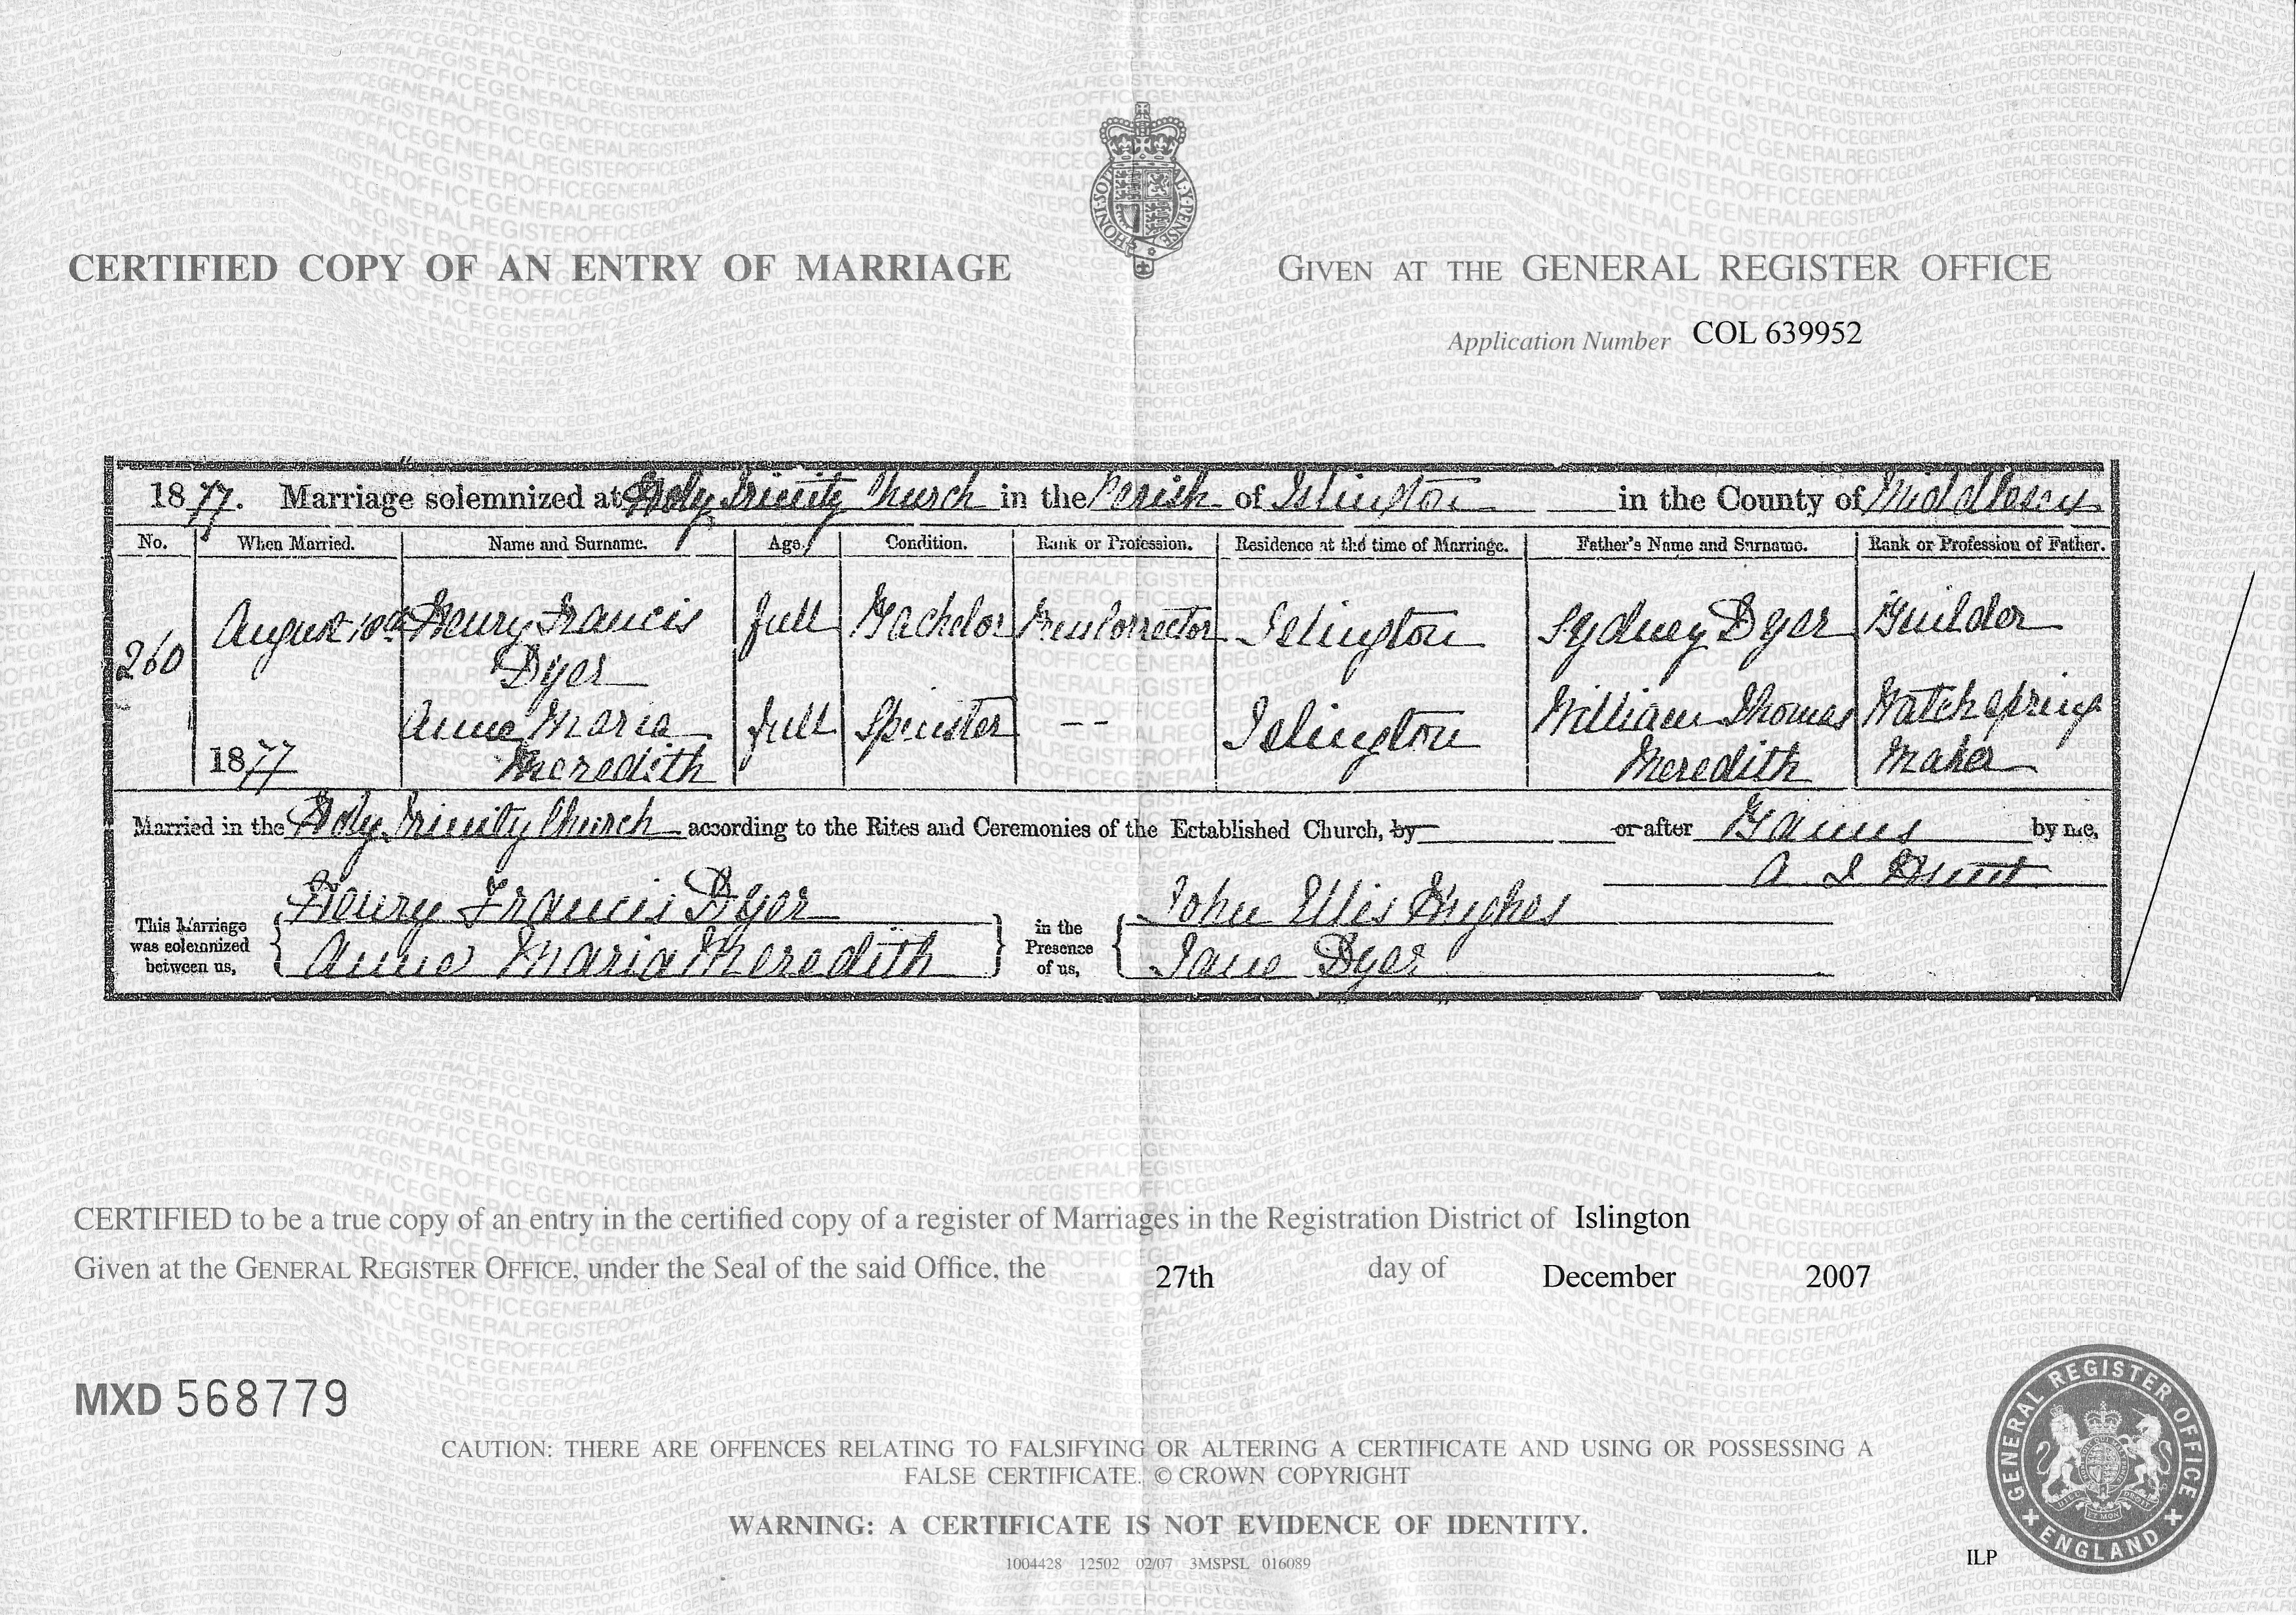 CERTIFIED COPY OF AN ENTRY OF MARRIAGE
GIVEN AT THE GENERAL REGISTER OFFICE
Application Number COL 639952
1877. Marriage solemnized at Holy Trinity Church in the Parish of Islington in the County of Middlesex
No. When Married. Name and Surname. Age. Condition. Rank or Profession. Residence at the time of Marriage. Father's Name and Surname. Rank or Profession of Father.
260 August 10th Henry Francis full Bachelor Islington Sydney Dyer Builder
Dyer
Anne Maria full Spinster -- Islington William Thomas Watch spring
1877 Meredith Meredith Maker
Married in the Holy Trinity Church according to the Rites and Ceremonies of the Established Church, by or after Banns by me,
This Marriage was solemnized between us,
Henry Francis Dyer
Anne Maria Meredith
in the Presence of us,
John Ellis Hughes
Jane Dyer
CERTIFIED to be a true copy of an entry in the certified copy of a register of Marriages in the Registration District of Islington
Given at the GENERAL REGISTER OFFICE, under the Seal of the said Office, the 27th day of December 2007
MXD 568779
CAUTION: THERE ARE OFFENCES RELATING TO FALSIFYING OR ALTERING A CERTIFICATE AND USING OR POSSESSING A
FALSE CERTIFICATE. © CROWN COPYRIGHT
WARNING: A CERTIFICATE IS NOT EVIDENCE OF IDENTITY.
1004428 12502 02/07 3MSPSL 016089
ILP
GENERAL REGISTER OFFICE
ENGLAND